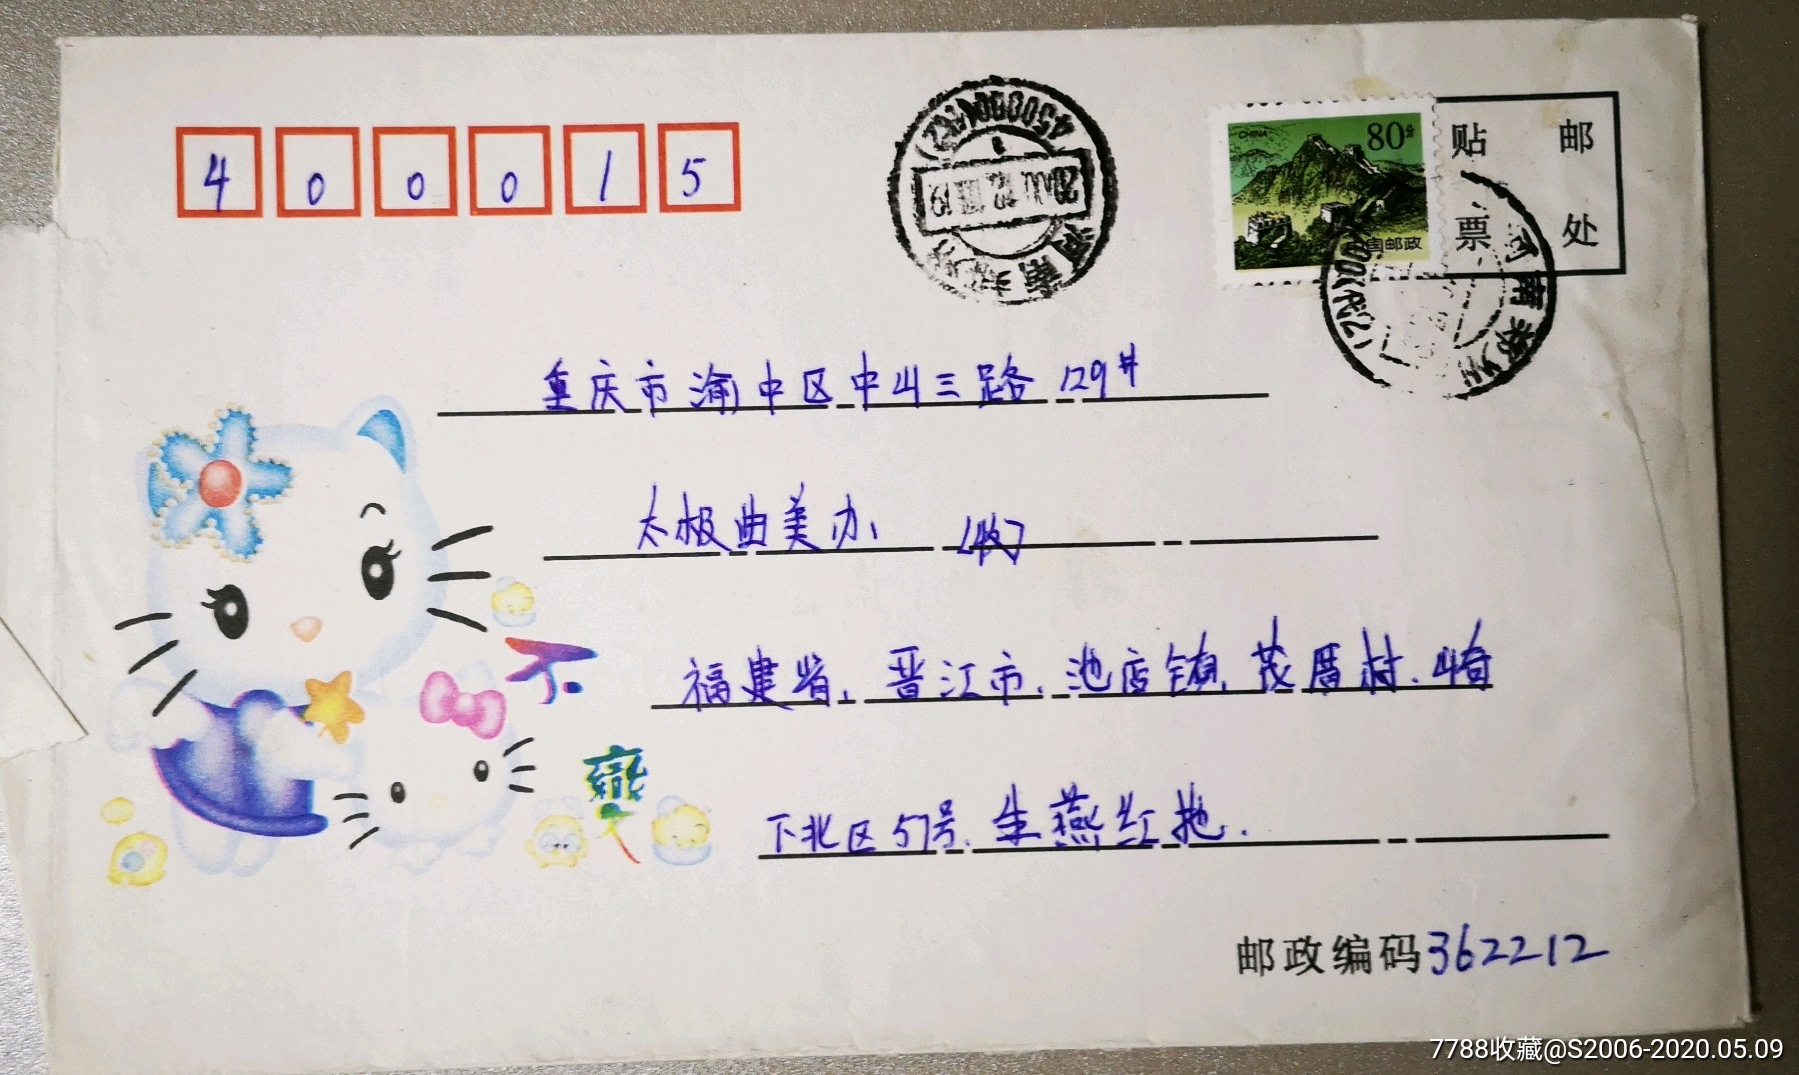 400015
4500000
河南郑州
CHINA
80分
中国邮政
贴 邮
票 处
河南郑州
重庆市渝中区中山三路129#
太极曲美办 (收)
不
福建省,晋江市,池店镇,茂厝村.
變
下北区57号.朱燕红拖.
邮政编码362212
7788收藏@S2006-2020.05.09